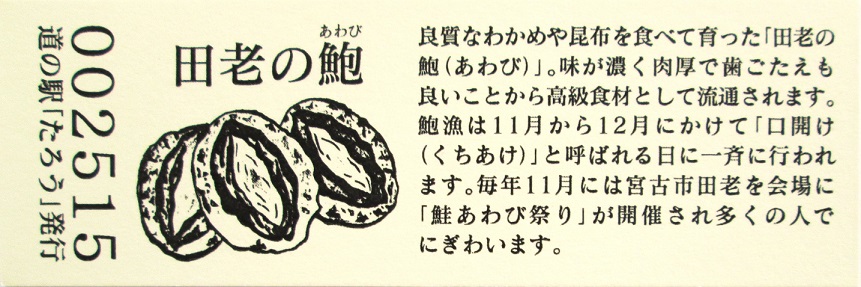 002515
道の駅「たろう」発行
あわび
田老の鮑
良質なわかめや昆布を食べて育った「田老の
鮑（あわび）」。味が濃く肉厚で歯ごたえも
良いことから高級食材として流通されます。
鮑漁は11月から12月にかけて「口開け
（くちあけ）」と呼ばれる日に一斉に行われ
ます。毎年11月には宮古市田老を会場に
「鮭あわび祭り」が開催され多くの人で
にぎわいます。